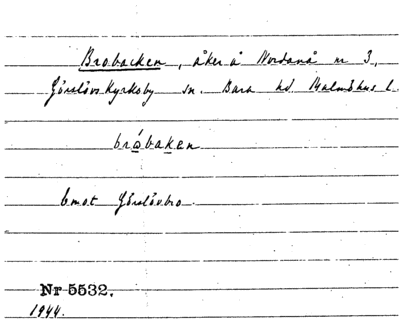 Brobacken, åker å Nordanå nr 3,
Görslövs Kyrkoby sn. Bara hd. Malmöhus l.
bråbaken
Emot Görslövbro.
Nr 5532.
1944.